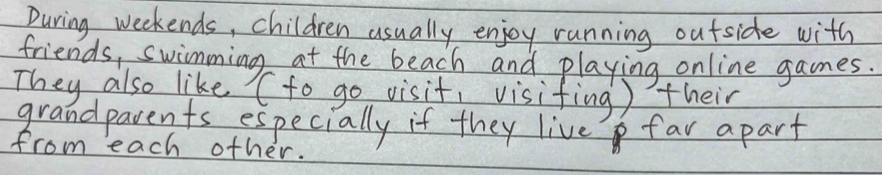 During weekends, children usually enjoy running outside with
friends, swimming at the beach and playing online games.
They also like (to go visit, visiting) their
grandparents especially if they live far apart
from each other.